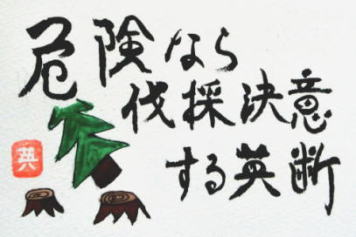 危険なら
伐採決意
する英断
英